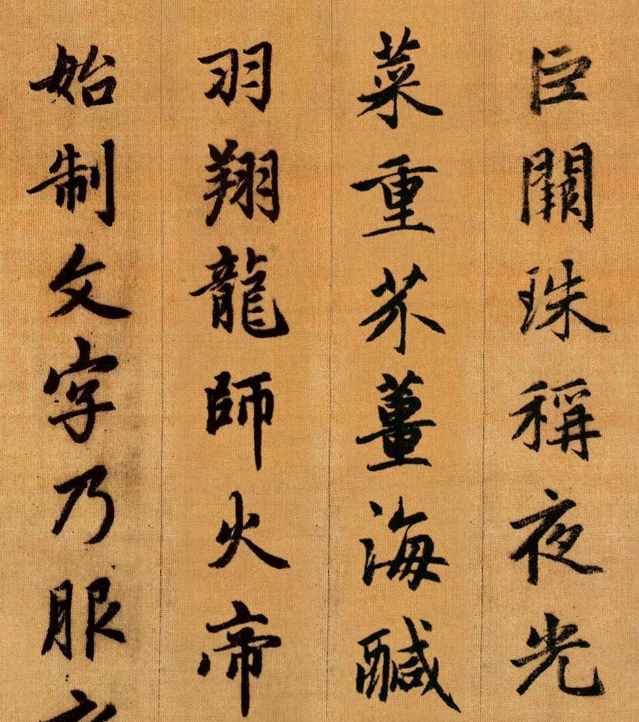 巨闕珠稱夜光
菜重芥薑海鹹
羽翔龍師火帝
始制文字乃服